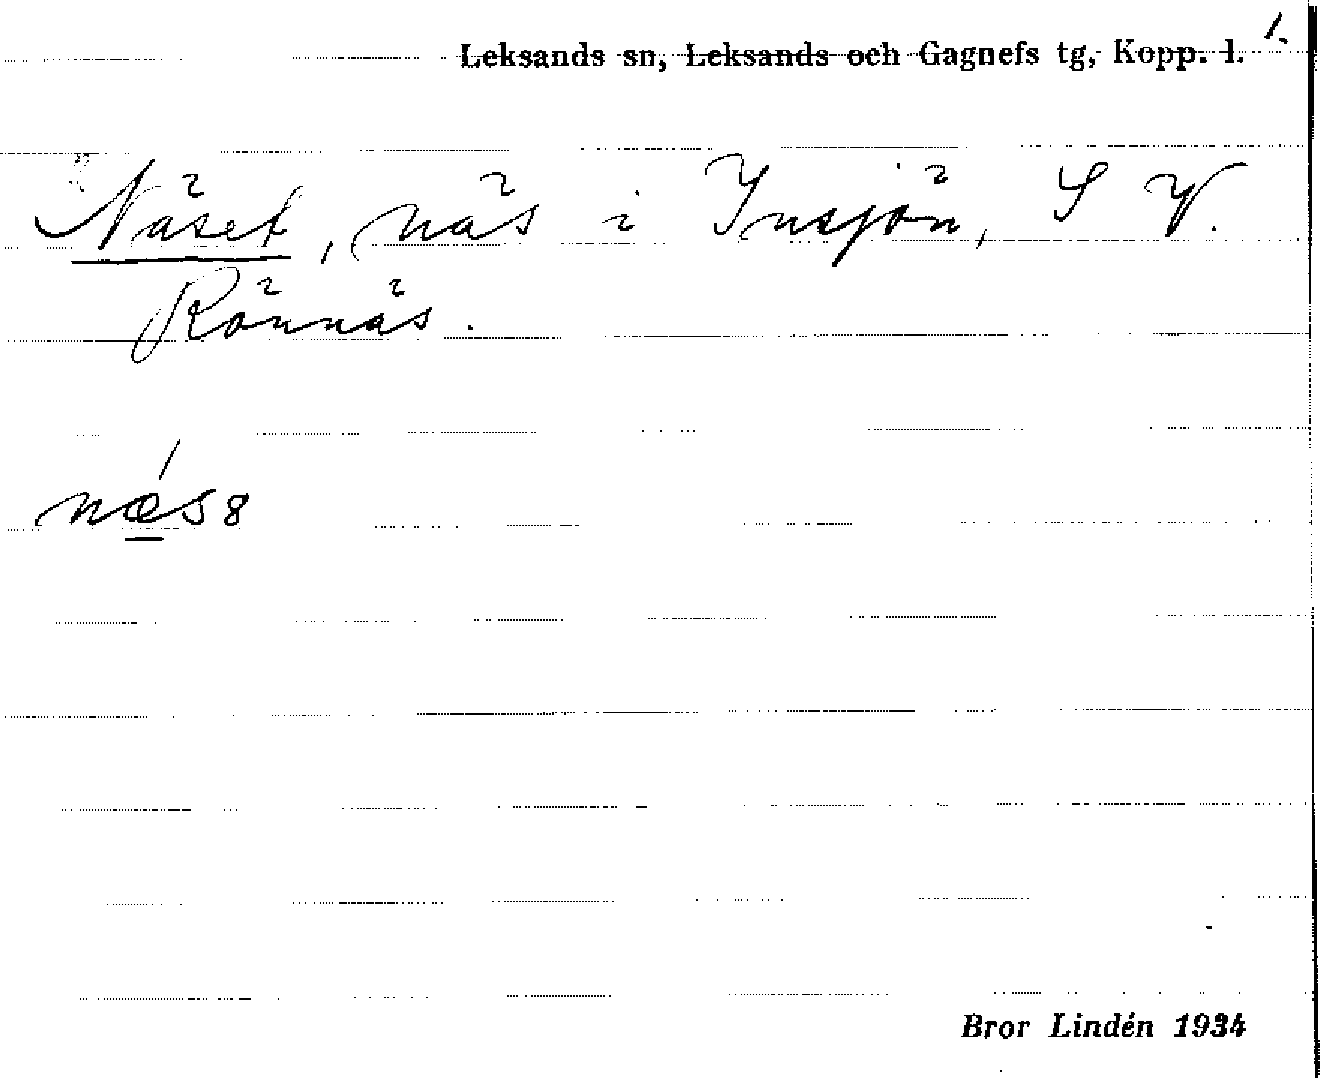 1.
Leksands sn, Leksands och Gagnefs tg, Kopp. l.
Näset, näs i Insjön, S V.
Rönnäs.
næs8
Bror Lindén 1934